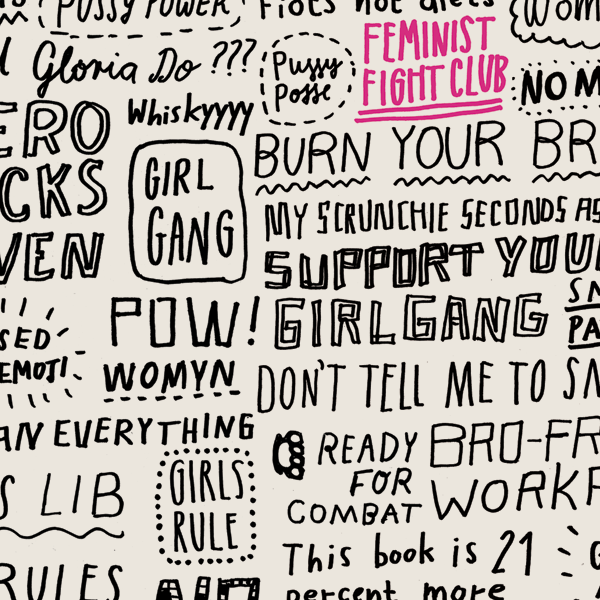 PUSSY POWER
Riots not diets
Gloria Do ???
Pussy
Posse
FEMINIST
FIGHT CLUB
NO M
Whiskyyyy
BURN YOUR BR
GIRL
GANG
MY SCRUNCHIE SECONDS AS
SUPPORT YOU
GIRLGANG
POW!
SED
EMOJI
WOMYN
DON'T TELL ME TO SM
AN EVERYTHING
READY
FOR
COMBAT
BRO-FR
WORKP
S LIB
GIRLS
RULE
This book is 21
percent more
RULES